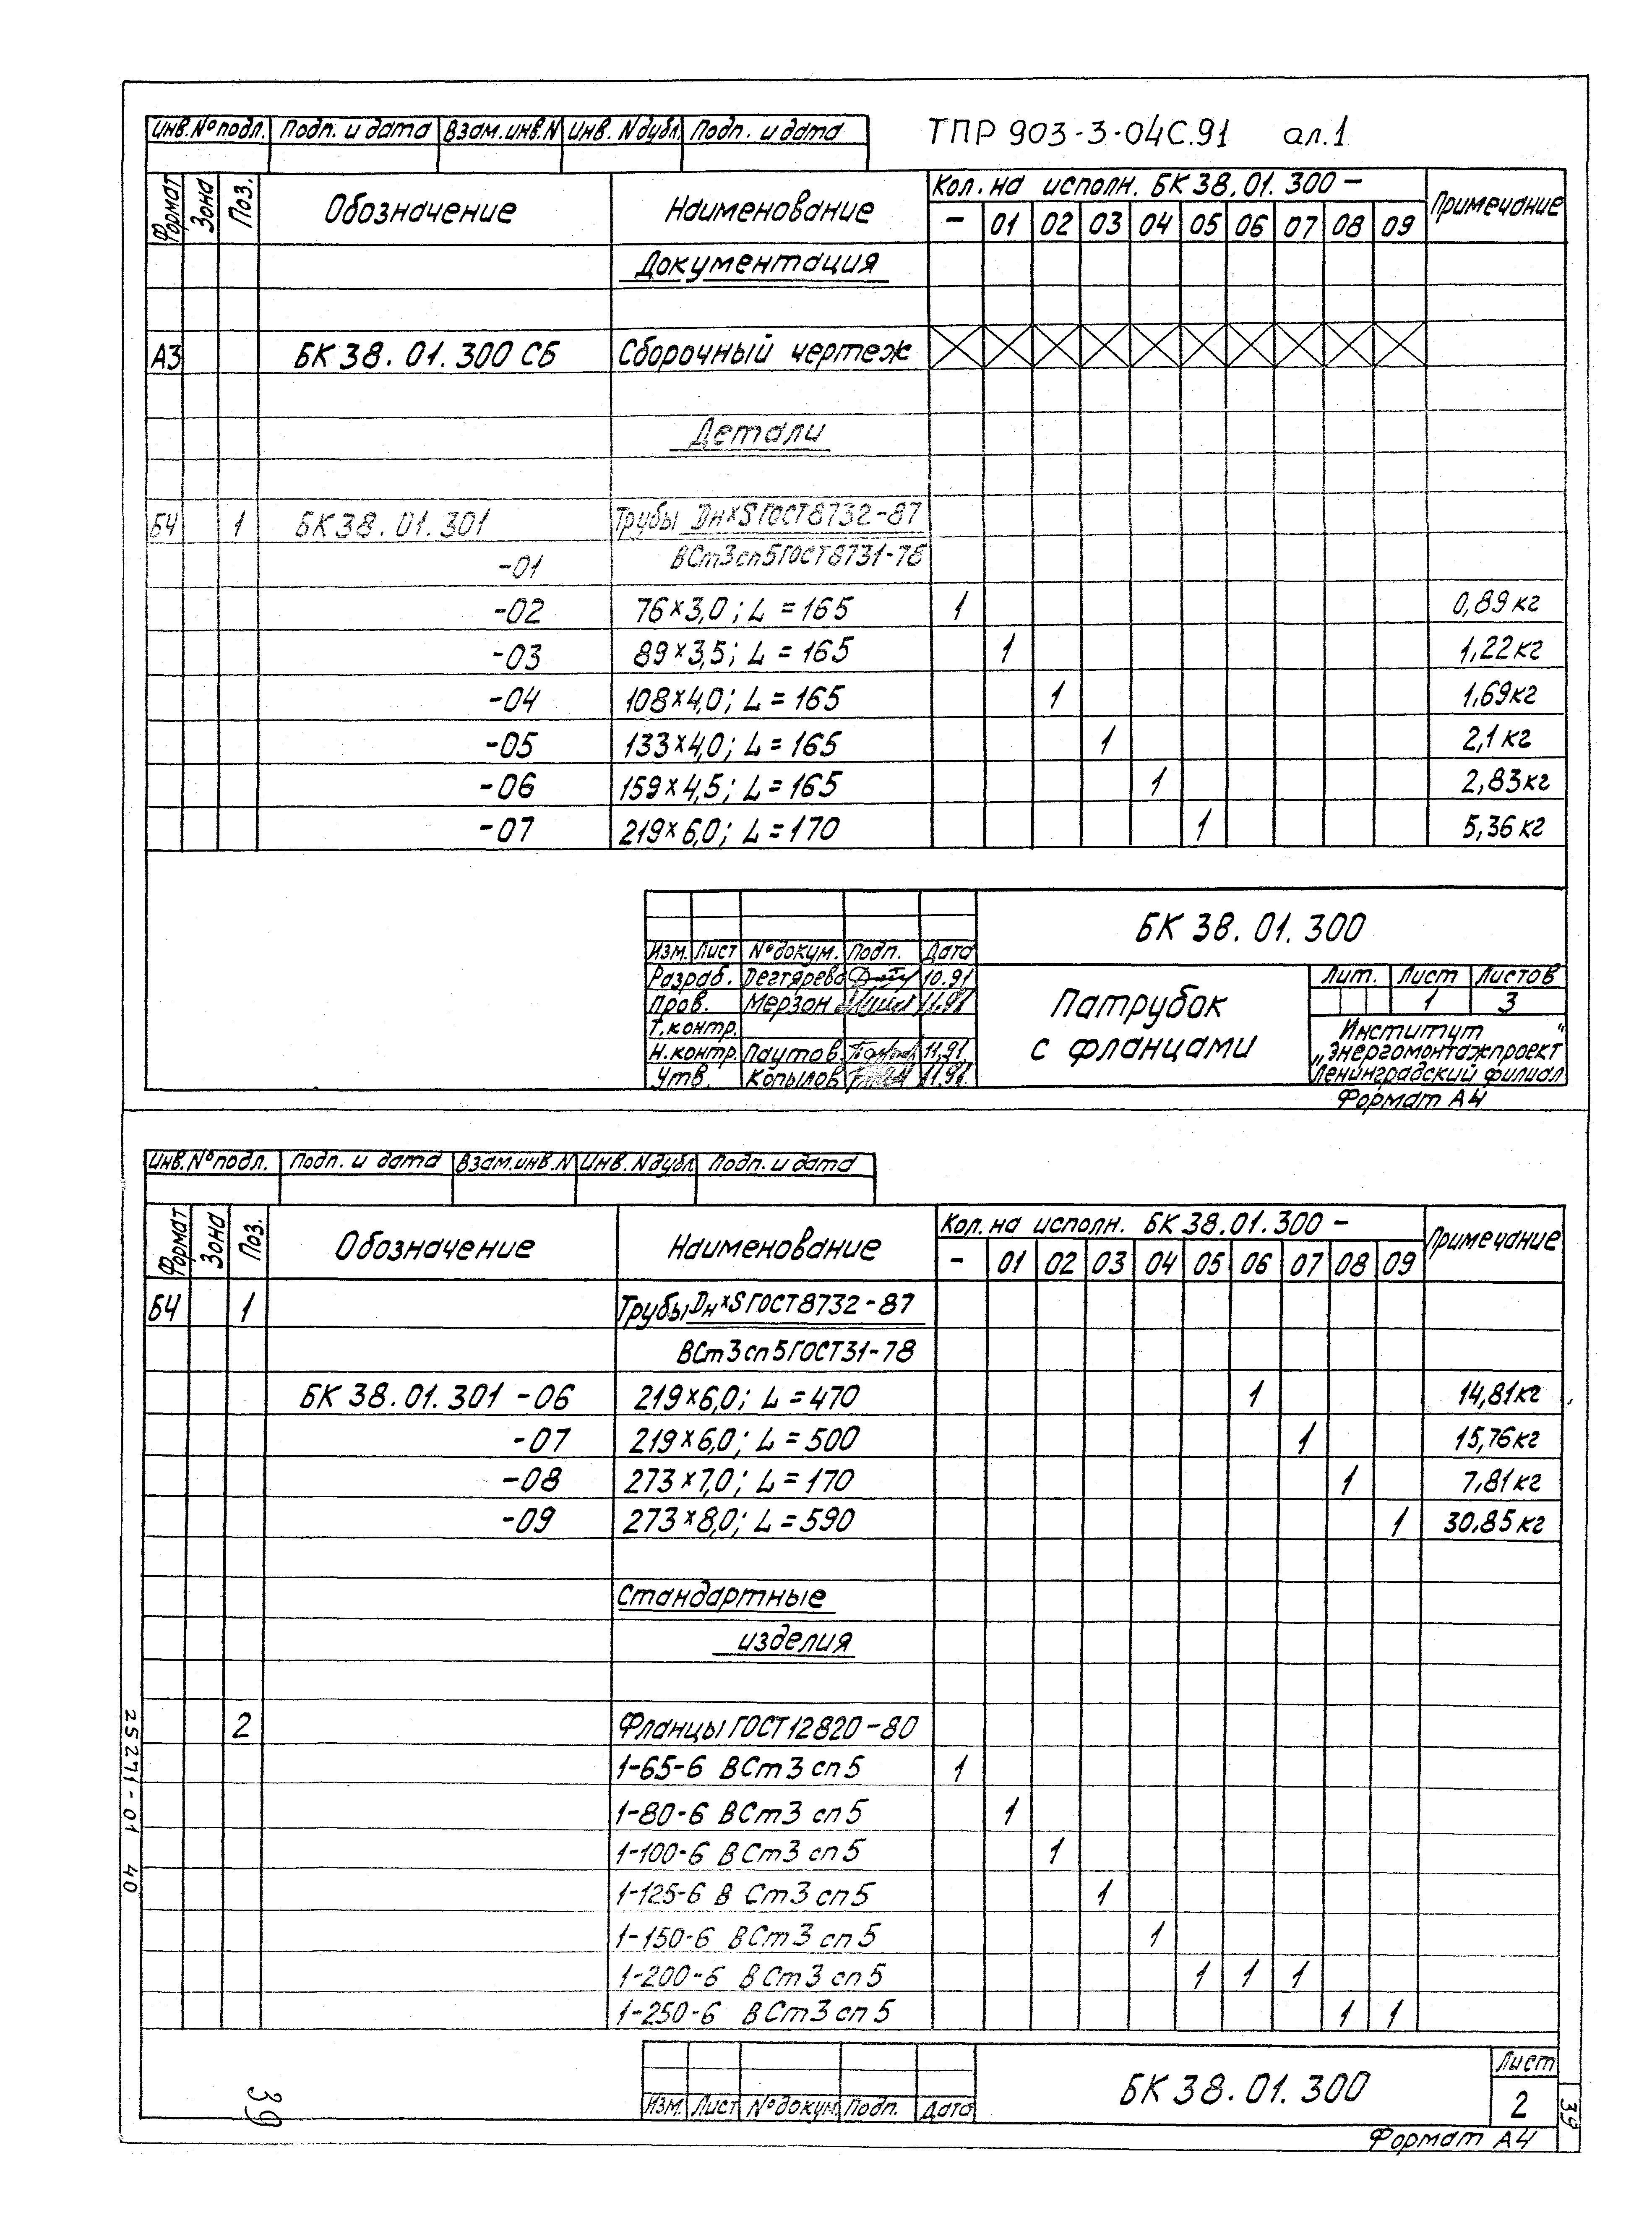 Инв.№подл. Подп. и дата Взам.инв.N Инв. N дубл. Подп. и дата
ТПР 903-3-04С.91 ал.1
Формат Зона Поз. Обозначение Наименование Кол. на исполн. БК 38.01.300 – Примечание
– 01 02 03 04 05 06 07 08 09
Документация
А3 БК 38.01.300 СБ Сборочный чертеж
Детали
БЧ 1 БК 38.01.301 Трубы Dн×S ГОСТ 8732-87
-01 ВСт3сп5 ГОСТ 8731-78
-02 76×3,0; L=165 1 0,89 кг
-03 89×3,5; L=165 1 1,22 кг
-04 108×4,0; L=165 1 1,69 кг
-05 133×4,0; L=165 1 2,1 кг
-06 159×4,5; L=165 1 2,83 кг
-07 219×6,0; L=170 1 5,36 кг
БК 38.01.300
Изм. Лист №докум. Подп. Дата
Разраб. Дегтярева 10.91
Пров. Мерзон 11.91
Т.контр.
Н.контр. Паутов 11.91
Утв. Копылов 11.91
Патрубок
с фланцами
Лит. Лист Листов
1 3
Институт
„Энергомонтажпроект“
Ленинградский филиал
Формат А4
Инв.№подл. Подп. и дата Взам.инв.N Инв. N дубл. Подп. и дата
Формат Зона Поз. Обозначение Наименование Кол. на исполн. БК 38.01.300 – Примечание
– 01 02 03 04 05 06 07 08 09
БЧ 1 Трубы Dн×S ГОСТ 8732-87
ВСт3сп5 ГОСТ 31-78
БК 38.01.301 -06 219×6,0; L=470 1 14,81 кг
-07 219×6,0; L=500 1 15,76 кг
-08 273×7,0; L=170 1 7,81 кг
-09 273×8,0; L=590 1 30,85 кг
Стандартные
изделия
2 Фланцы ГОСТ 12820-80
1-65-6 ВСт3сп5 1
1-80-6 ВСт3сп5 1
1-100-6 ВСт3сп5 1
1-125-6 ВСт3сп5 1
1-150-6 ВСт3сп5 1
1-200-6 ВСт3сп5 1 1 1
1-250-6 ВСт3сп5 1 1
25271-01 40
39
Изм. Лист №докум. Подп. Дата
БК 38.01.300
Лист
2
39
Формат А4